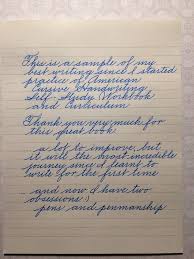 This is a sample of my
best writing since I started
practice of American
Cursive Handwriting
Self-Study Workbook
and Curriculum
Thank you very much for
this great book
a lot to improve, but
it will the most incredible
journey since I learnt to
write for the first time
and now I have two
obsessions:)
pens and penmanship